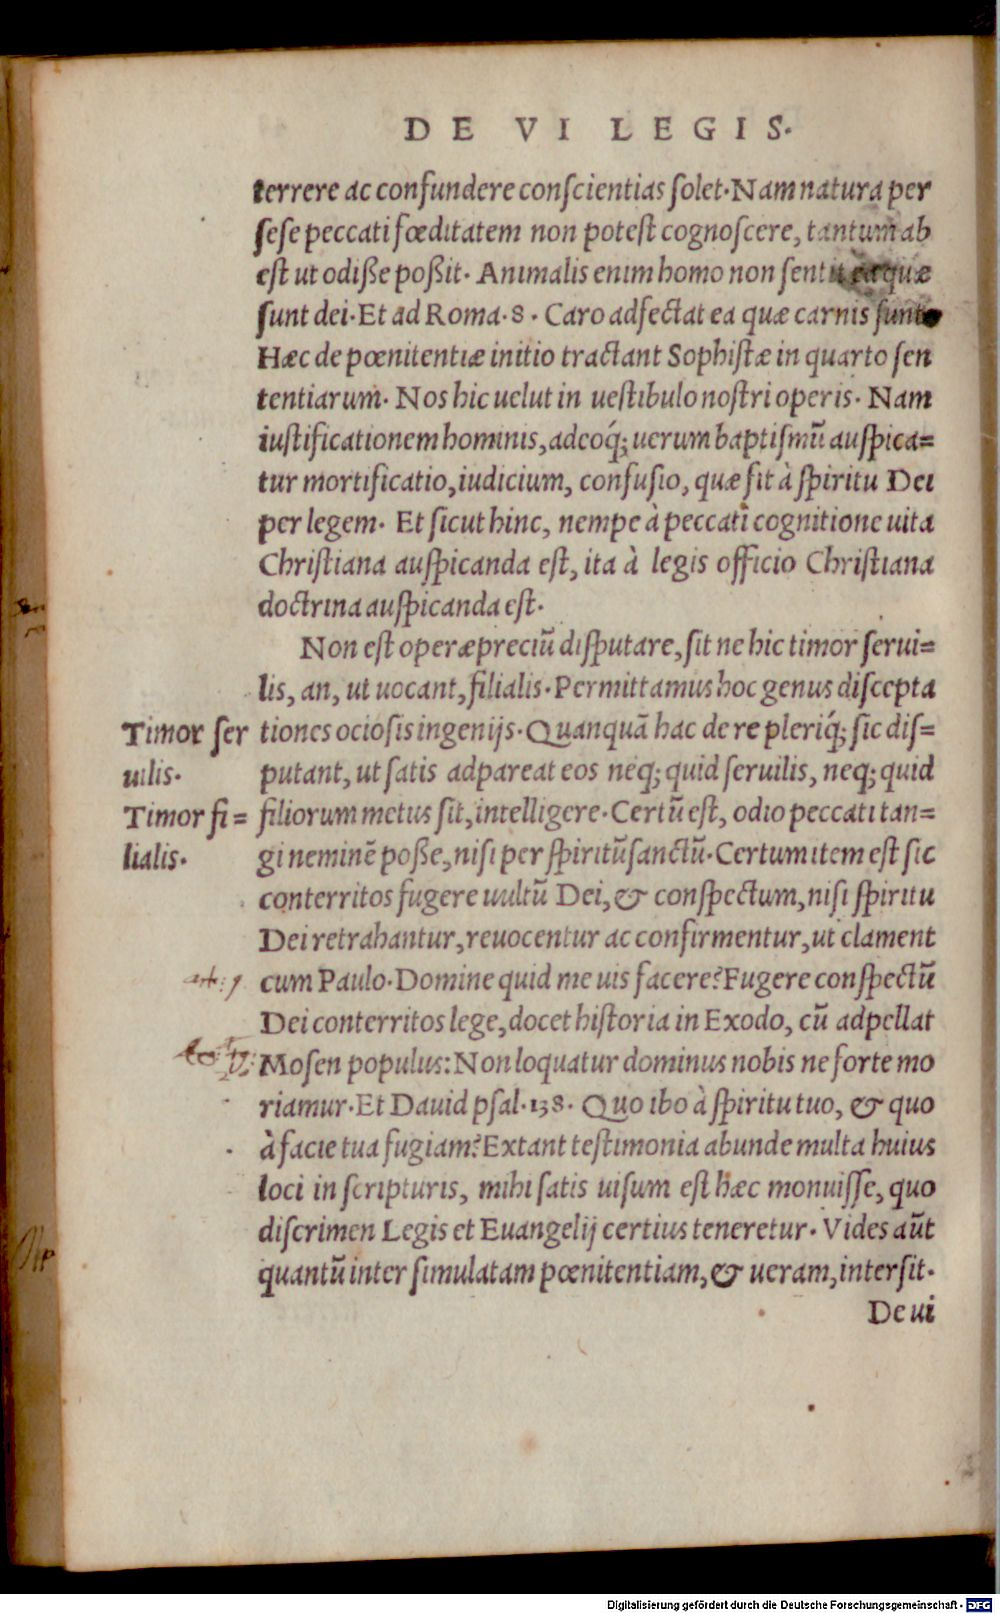 DE VI LEGIS.
terrere ac confundere conſcientias ſolet. Nam natura per
ſeſe peccati fœditatem non poteſt cognoſcere, tantum ab
eſt ut odiße poßit. Animalis enim homo non ſentit ea quæ
ſunt dei. Et ad Roma. 8. Caro adfectat ea quæ carnis ſunt
Hæc de pœnitentiæ initio tractant Sophiſtæ in quarto ſen
tentiarum. Nos hic uelut in ueſtibulo noſtri operis. Nam
iuſtificationem hominis, adeoq́; uerum baptiſmũ auſpica=
tur mortificatio, iudicium, confuſio, quæ fit à ſpiritu Dei
per legem. Et ſicut hinc, nempe à peccati cognitione uita
Chriſtiana auſpicanda eſt, ita à legis officio Chriſtiana
doctrina auſpicanda eſt.
Non eſt operæpreciũ diſputare, ſit ne hic timor ſerui=
lis, an, ut uocant, filialis. Permittamus hoc genus diſcepta
Timor ſer
uilis.
Timor fi=
lialis.
tiones ocioſis ingenijs. Quanquã hac de re pleriq́; ſic diſ=
putant, ut ſatis adpareat eos neq; quid ſeruilis, neq; quid
filiorum metus ſit, intelligere. Certũ eſt, odio peccati tan=
gi neminẽ poße, niſi per ſpiritũ ſanctũ. Certum item eſt ſic
conterritos fugere uultũ Dei, & conſpectum, niſi ſpiritu
Dei retrahantur, reuocentur ac confirmentur, ut clament
cum Paulo. Domine quid me uis facere? Fugere conſpectũ
Dei conterritos lege, docet hiſtoria in Exodo, cũ adpellat
Moſen populus: Non loquatur dominus nobis ne forte mo
riamur. Et Dauid pſal. 138. Quo ibo à ſpiritu tuo, & quo
à facie tua fugiam? Extant teſtimonia abunde multa huius
loci in ſcripturis, mihi ſatis uiſum eſt hæc monuiſſe, quo
diſcrimen Legis et Euangelij certius teneretur. Vides aũt
quantũ inter ſimulatam pœnitentiam, & ueram, interſit.
De ui
Digitalisierung gefördert durch die Deutsche Forschungsgemeinschaft - DFG